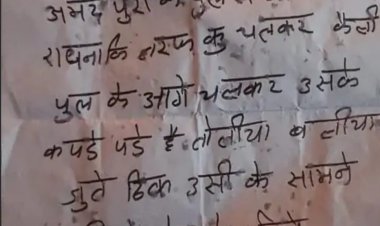 अमद पुरा
राधनाकि तरफ कु चलकर कैली
पुल के आगे चलकर उसके
कपडे पडे है तोलीया व लीया
जुते ठिक उसी के सामने